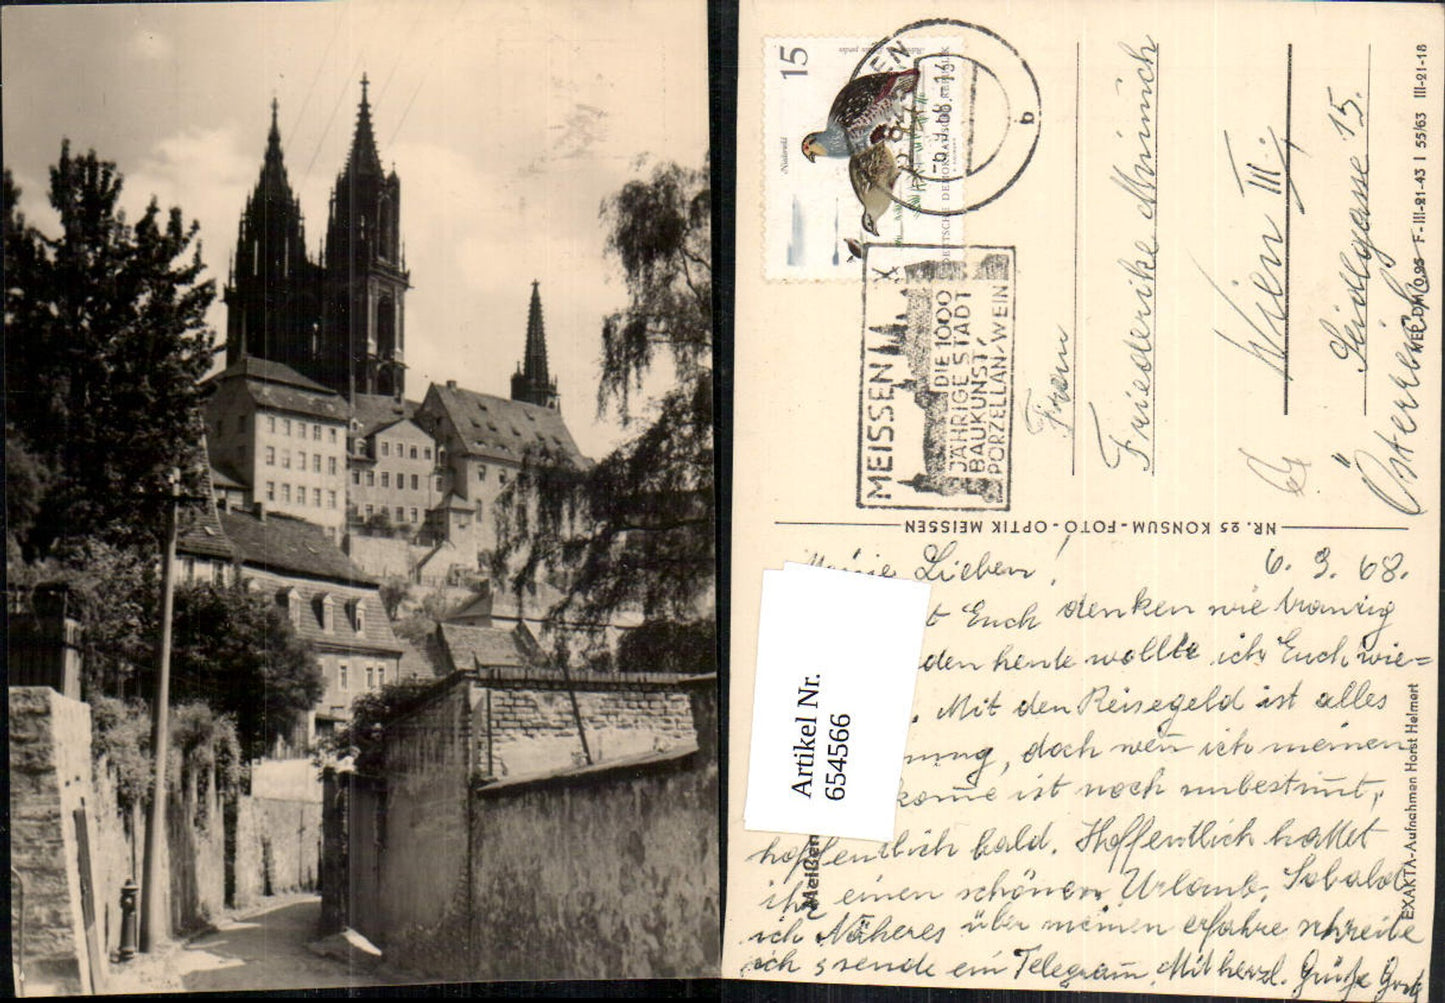 15
DEUTSCHE DEMOKRATISCHE REPUBLIK
-6.9.68.-16
b
MEISSEN
DIE 1000
JÄHRIGE STADT
BAUKUNST,
PORZELLAN, WEIN
Frau
Friederike Münnich
Wien III.,
Seidlgasse 15.
Österreich
NR. 25 KONSUM-FOTO-OPTIK MEISSEN
F-III-21-43 I 55/63 III-21-18
EXAKTA-Aufnahmen Horst Helmert
Meißen
Artikel Nr.
654566
Meine Lieben! 6. 9. 68.
Euch denken wie traurig
heute wollte ich Euch wie=
. Mit den Reisegeld ist alles
, doch wen ich meinen
ist noch unbestimt,
hoffentlich bald. Hoffentlich hattet
ihr einen schönen Urlaub. Sobald
ich Näheres über meinen erfahre schreibe
ich sende ein Telegram. Mit herzl. Grüße